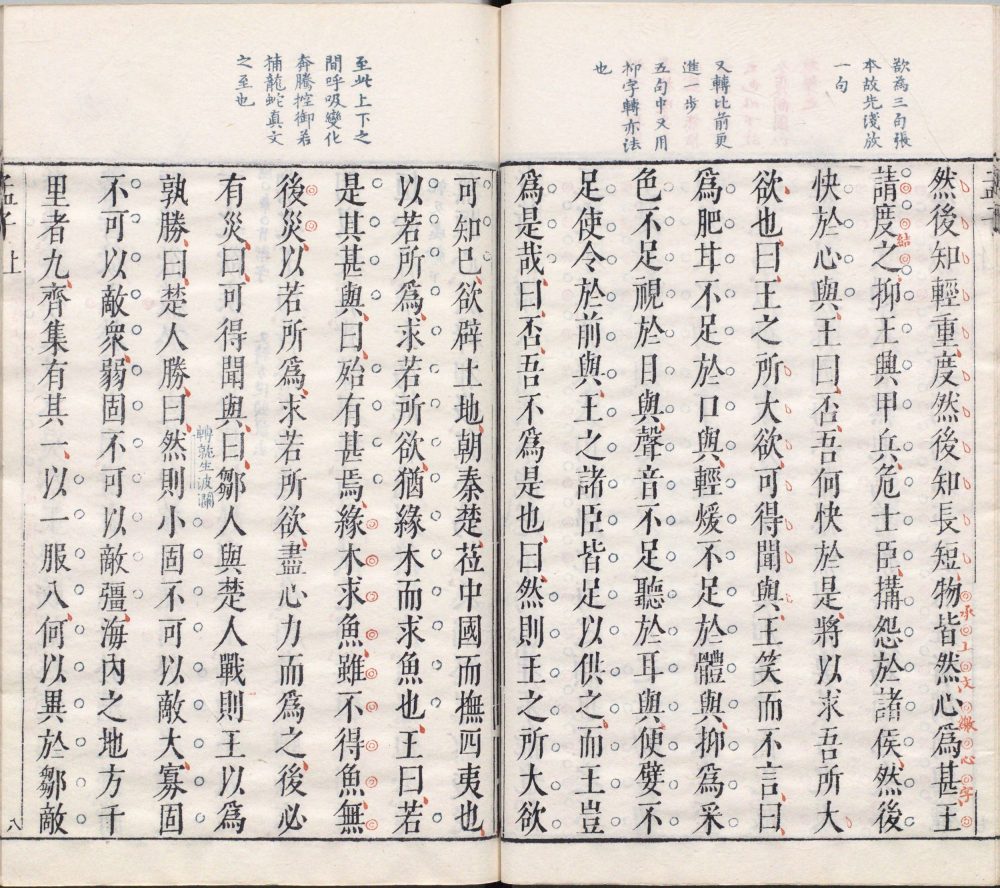 欲為三句張
本故先淺放
一句
又轉比前更
進一步
五句中又用
抑字轉亦法
也
然後知輕重度然後知長短物皆然心爲甚王
承上文繳心字
請度之抑王興甲兵危士臣搆怨於諸侯然後
結
快於心與王曰否吾何快於是將以求吾所大
欲也曰王之所大欲可得聞與王笑而不言曰
爲肥甘不足於口與輕煖不足於體與抑爲采
色不足視於目與聲音不足聽於耳與便嬖不
足使令於前與王之諸臣皆足以供之而王豈
爲是哉曰否吾不爲是也曰然則王之所大欲
至此上下之
間呼吸變化
奔騰控御若
捕龍蛇真文
之至也
可知已欲辟土地朝秦楚莅中國而撫四夷也
以若所爲求若所欲猶緣木而求魚也王曰若
是其甚與曰殆有甚焉緣木求魚雖不得魚無
後災以若所爲求若所欲盡心力而爲之後必
有災曰可得聞與曰鄒人與楚人戰則王以爲
轉就生波瀾
孰勝曰楚人勝曰然則小固不可以敵大寡固
不可以敵衆弱固不可以敵彊海內之地方千
里者九齊集有其一以一服八何以異於鄒敵
孟子上
八